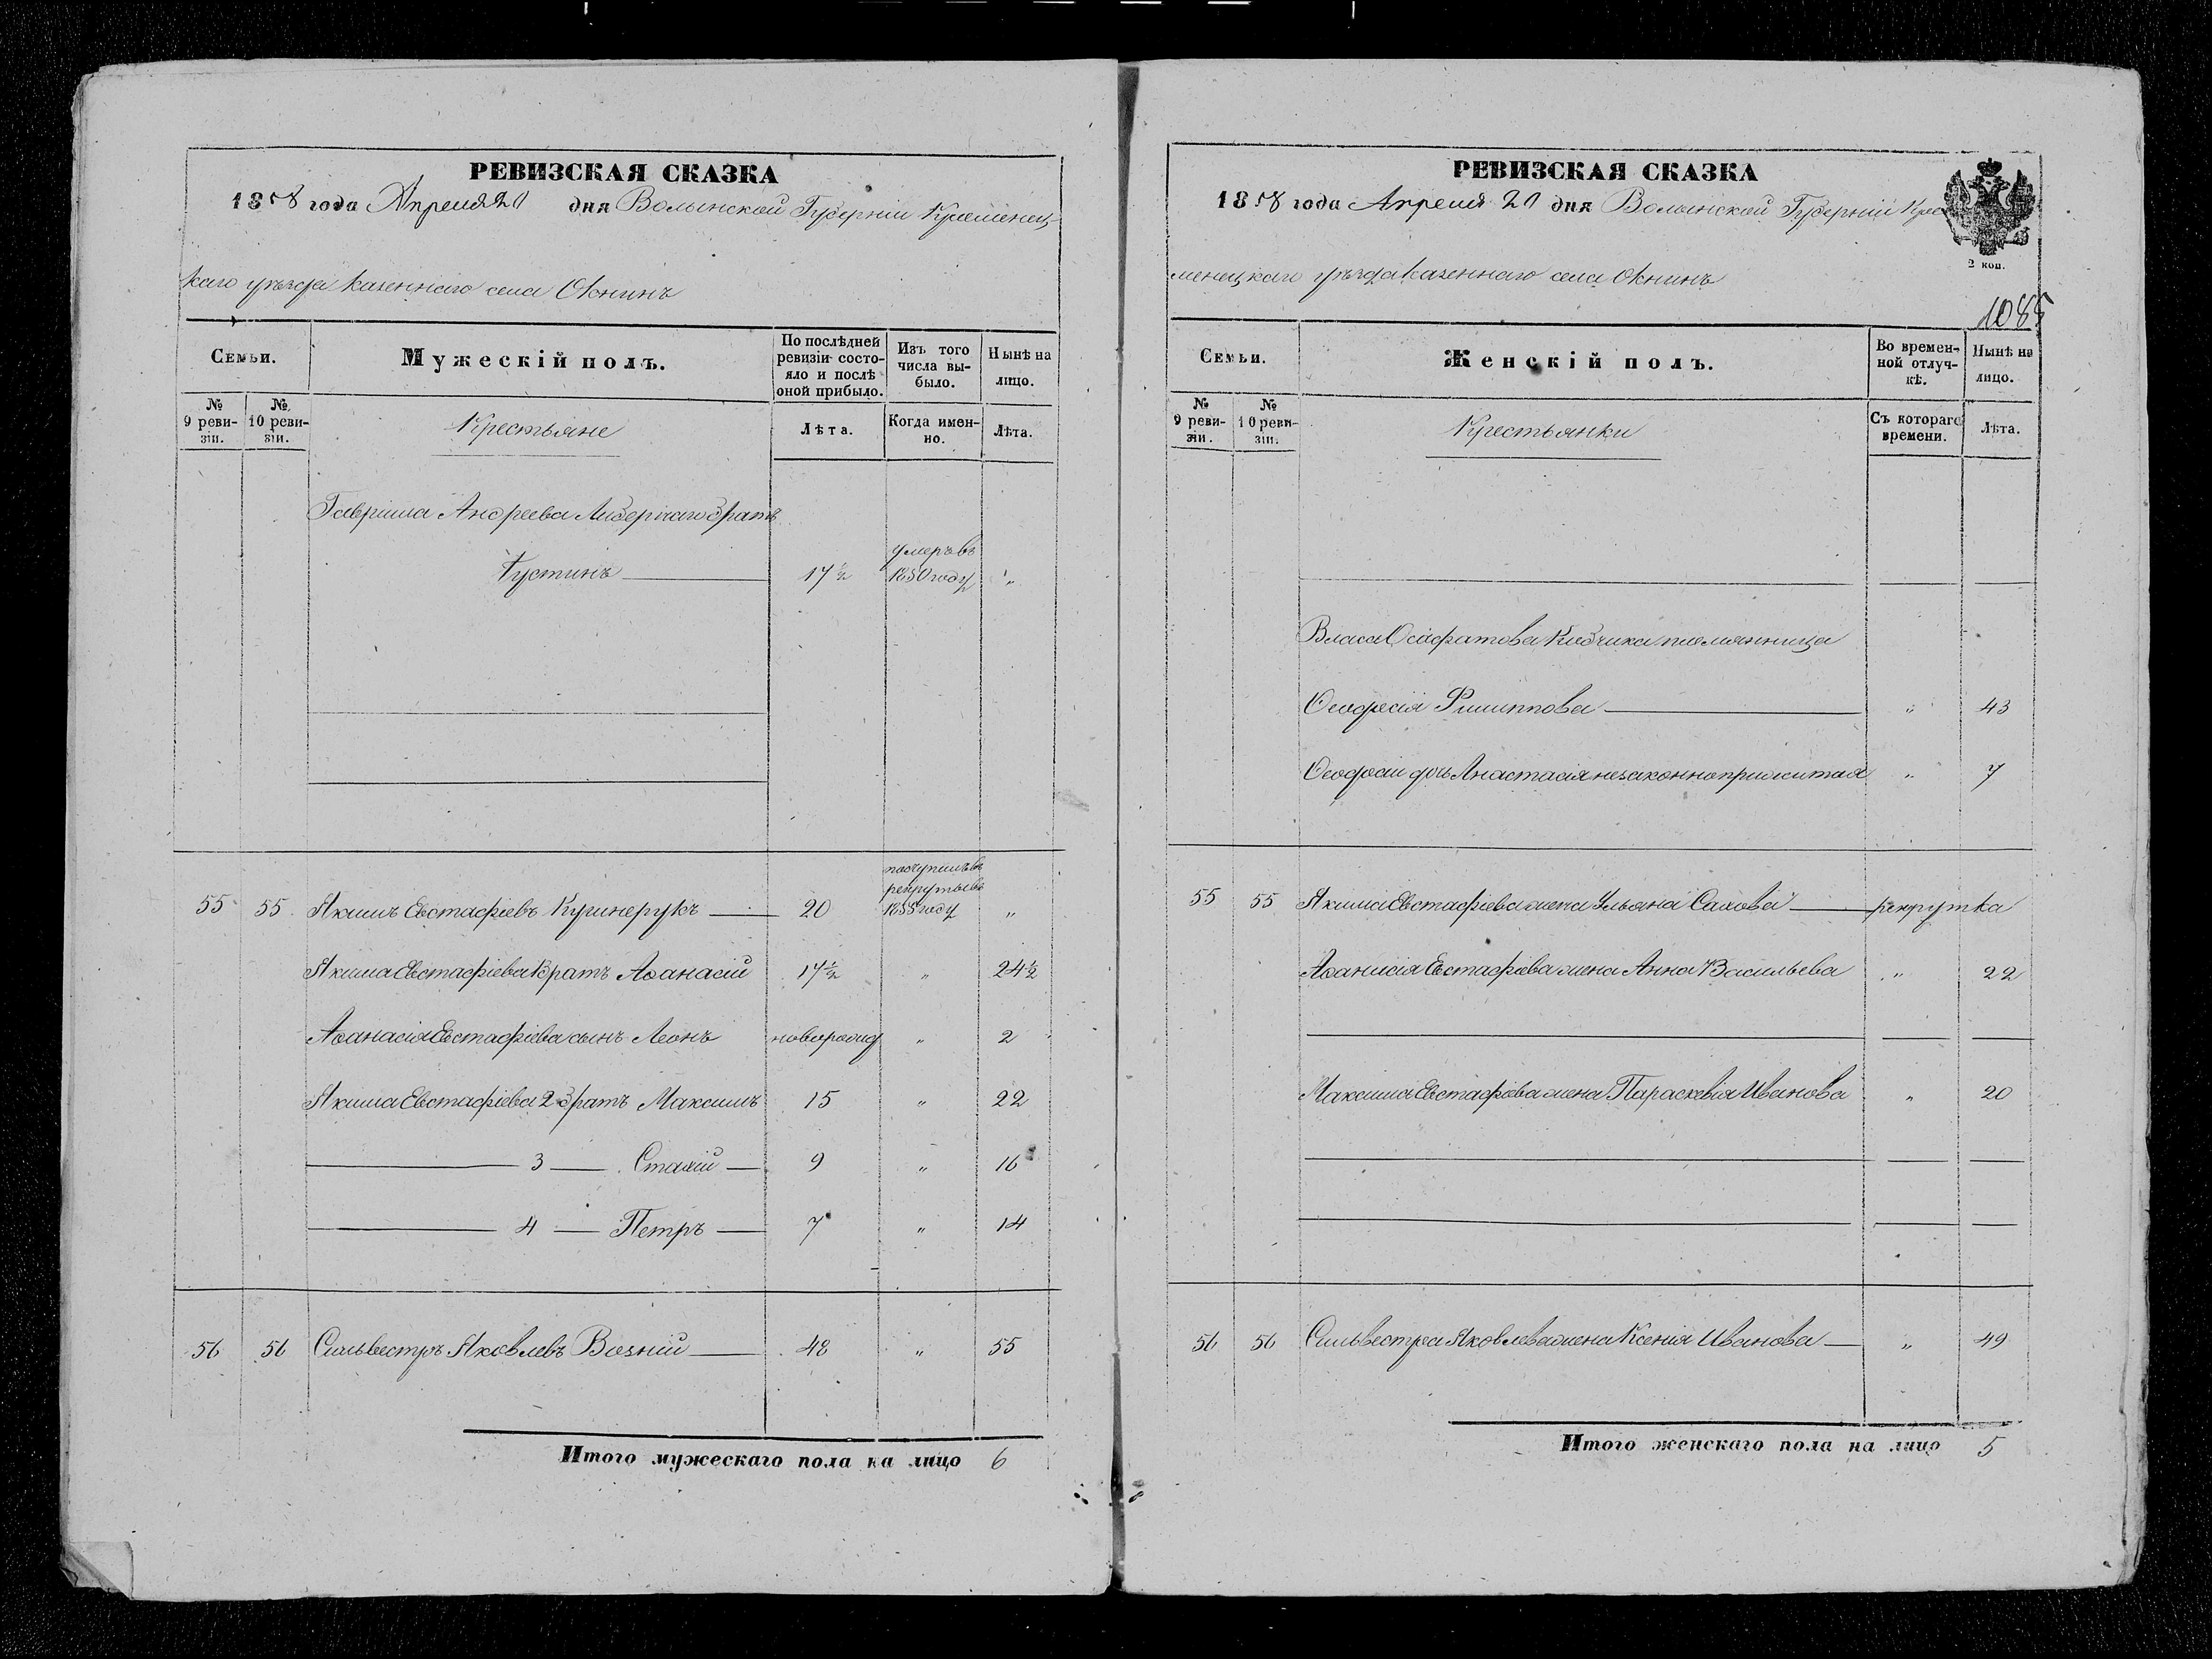 РЕВИЗСКАЯ СКАЗКА
1858 года Апреля 20 дня Волынской Губерніи Кременец-
каго уѣзда казеннаго села Окнинъ
Семьи.
Мужескій полъ.
По послѣдней ревизіи состо-яло и послѣ оной прибыло.
Изъ того числа вы-было.
Нынѣ на лицо.
№ 9 реви-зіи.
№ 10 реви-зіи.
Крестьяне
Лѣта.
Когда имен-но.
Лѣта.
Гаврила Андреева братъ
умеръ въ
Густинъ 17½ 1850 году "
поступилъ въ
рекруты въ
55 55 Якимъ Евстафіевъ Кушнерукъ 20 1855 году "
Якима Евстафіева Братъ Аѳанасій 17½ " 24½
Аѳанасія Евстафіева сынъ Леонъ новорожд " 2
Якима Евстафіева 2 братъ Максимъ 15 " 22
3 Стахій 9 " 16
4 Петръ 7 " 14
56 56 Сильвестръ Яковлевъ Возній 48 " 55
Итого мужескаго пола на лицо 6
РЕВИЗСКАЯ СКАЗКА
1858 года Апреля 20 дня Волынской Губерніи Кре
менецкаго уѣзда казеннаго села Окнинъ
2 коп.
1085
Семьи.
Женскій полъ.
Во времен-ной отлуч-кѣ.
Нынѣ на лицо.
№ 9 реви-зіи.
№ 10 реви-зіи.
Крестьянки
Съ котораго времени.
Лѣта.
Власа Осафатова племянница
Ѳеодосія Филиппова " 43
Ѳеодосіи дочь Анастасія незаконноприжитая " 7
55 55 Якима Евстафіева жена Ульяна Савова рекрутка
Аѳанасія Евстафіева жена Анна Васильева " 22
Максима Евстафіева жена Параскевія Иванова " 20
56 56 Сильвестра Яковлева жена Ксенія Иванова " 49
Итого женскаго пола на лицо 5